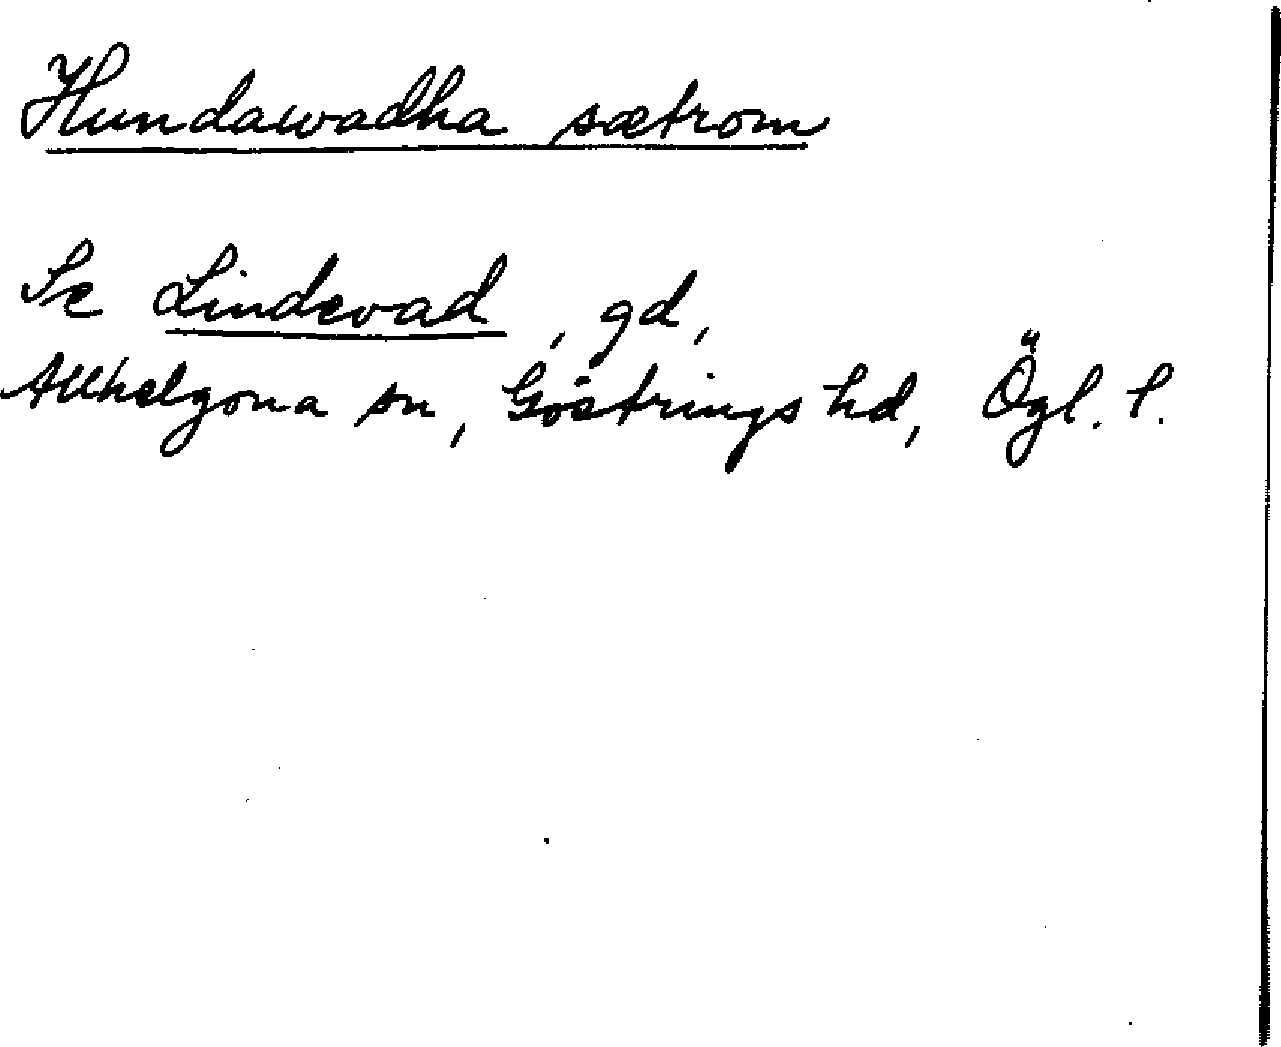 Hundawadha sætrom
Se Lindevad, gd,
Allhelgona sn, Göstrings hd, Ögl. l.